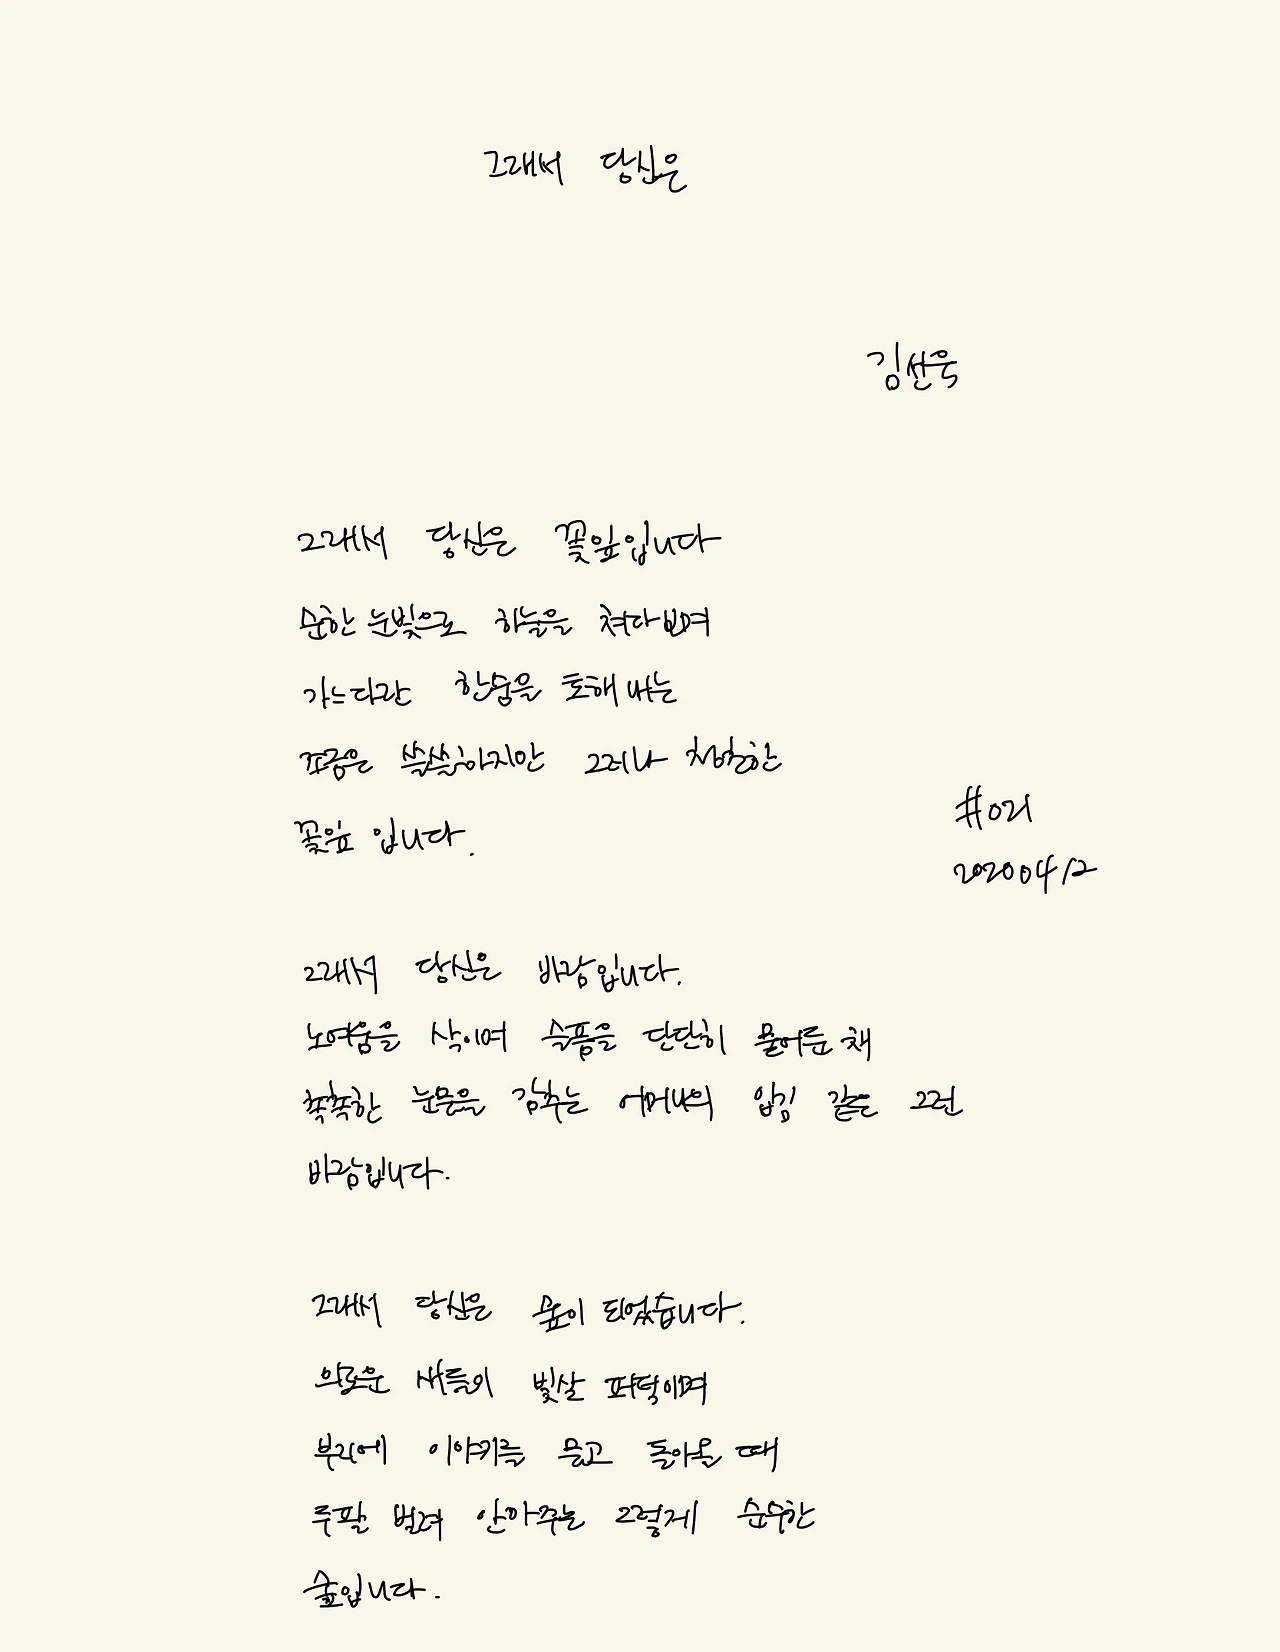 그래서 당신은
김선욱
그래서 당신은 꽃잎입니다
순한 눈빛으로 하늘을 쳐다보며
가느다란 한숨을 토해내는
조금은 쓸쓸하지만 그러나 처절한
꽃잎 입니다.
#021
20200412
그래서 당신은 바람입니다.
노여움을 삭이며 슬픔을 단단히 물어둔 채
축축한 눈물을 감추는 어머니의 입김 같은 그런
바람입니다.
그래서 당신은 숲이 되었습니다.
외로운 새들이 빛살 퍼덕이며
부리에 이야기를 물고 돌아올 때
두팔 벌려 안아주는 그렇게 순수한
숲입니다.